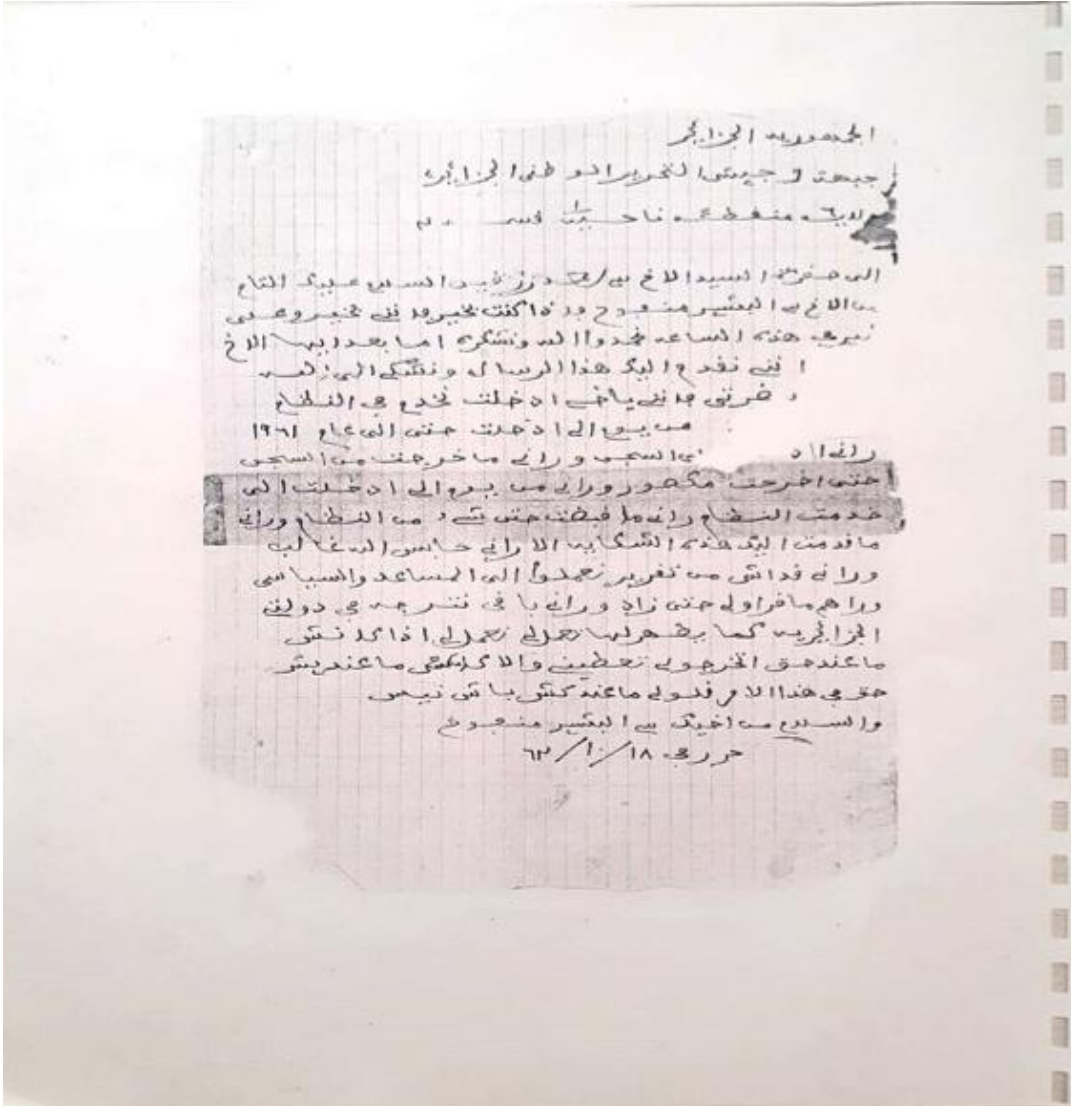 الجمهورية الجزائر
جبهة و جيش التحرير الوطني الجزائر
ولاية ٦ منطقة ناحية قسم
الى حضرة السيد الاخ السلام عليك التام
من الاخ بن البشير منصوح وذا كنت بخير فانني بخير وعلى
نيري هذه الساعة نحمدوا الله ونشكره اما بعد ايها الاخ
انني نقدم اليك هذا الرسالة ونشتكي الى الله
و ضرتي فانني ياخي ادخلت نخدم في النظام
من يوم الي ادخلت حتى الى عام ١٩٦١
راني السجن وراني ما خرجت من السجن
حتى اخرجت مكصور وراني من يوم الي ادخلت الى
خدمت النظام راني ما قبضت حتى شيء من النظام وراني
ما قدمت اليك هذه الشكاية الا راني حابس الله غالب
وراني قداش من تقرير نعملوا الى المساعد والسياسي
وراهم ماقراولي حتى زاد وراني باقي نترجه في دولتي
الجزائرية كما يظهرلها تعملي تعملي اذا كانش
ماعند حق اتخرجولي تعطيني والا كانش ماعنديش
حق في هذا الامر قلولي ماعندكش باش نيس
والسلام من اخيك بن البشير منصوح
حرر في ١٨/١٠/٦٢